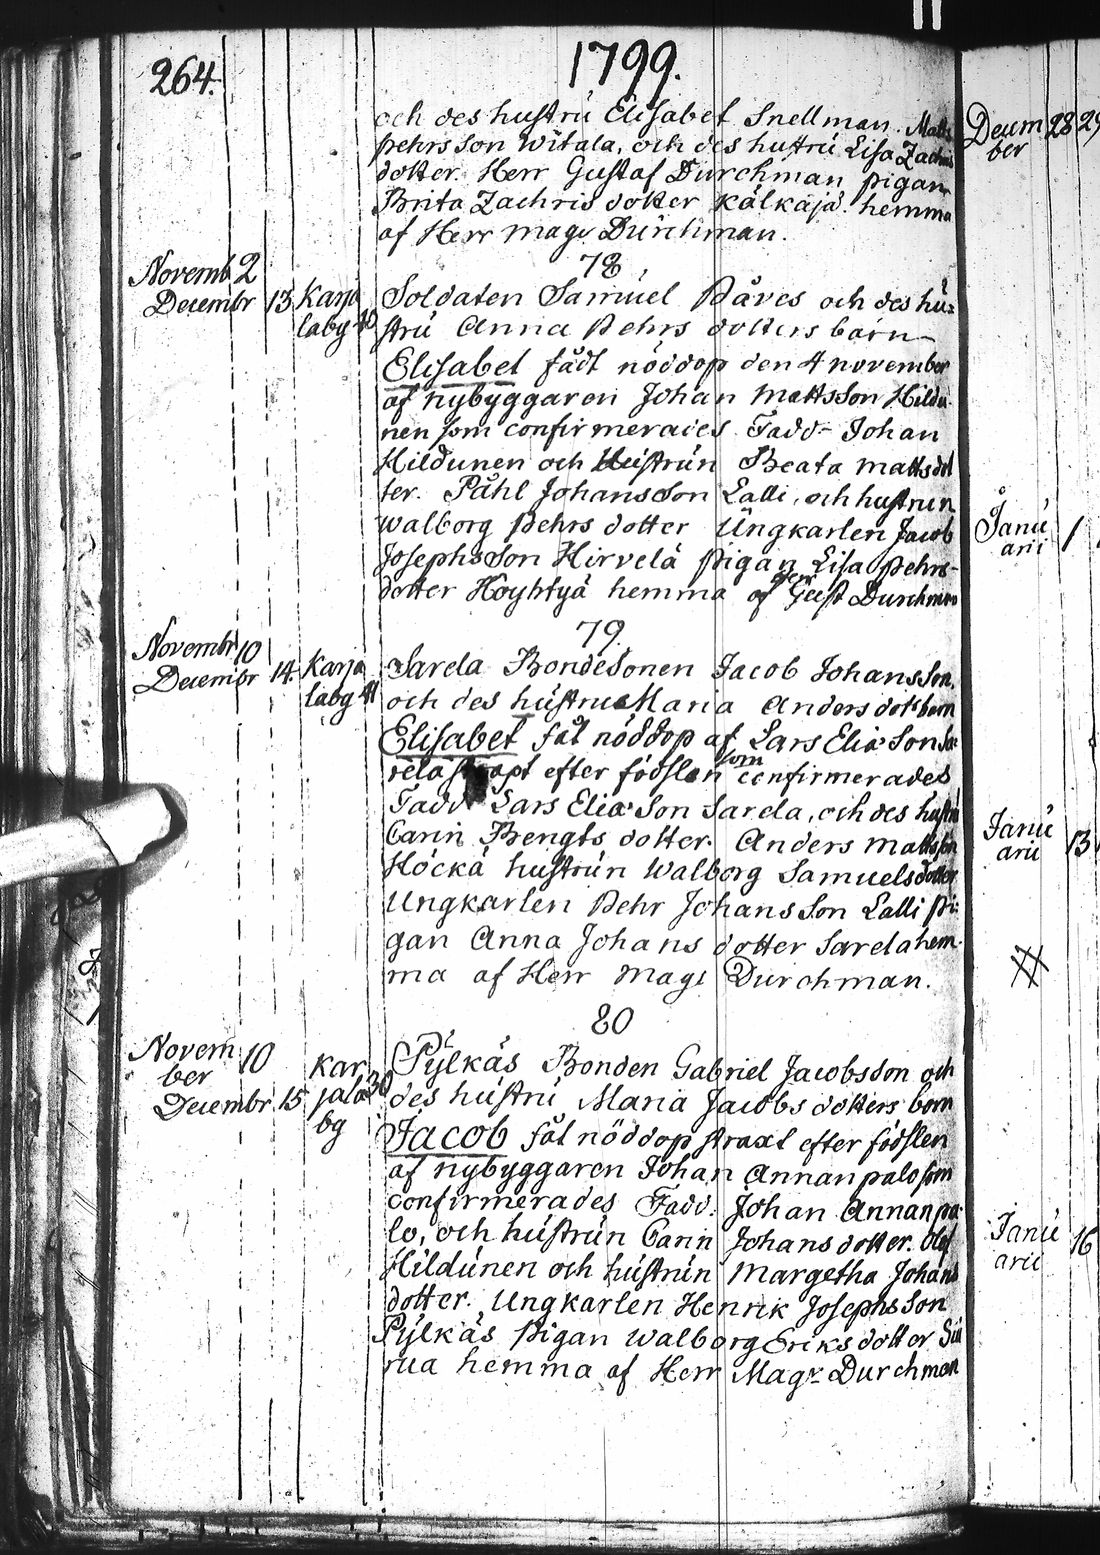 264.
1799.
och des hustru Elisabet Snellman. Matts
pehrs Son Witala, och des hustru Lisa Zachris
dotter. Herr Gustaf Durchman pigan
Brita Zachris dotter Kälkäjä. hemma
af Herr Mag. Durchman.
78
Novemb 2
Decembr 13 Karja
laby 40
Soldaten Samuel Påves och des hu=
stru Anna Pehrs dotters barn
Elisabet fådt nöddop den 4 november
af nybyggaren Johan MattsSon Hildu
nen som confirmerades Fadd- Johan
Hildunen och Hustrun Beata Matts dot
ter. Påhl JohansSon Lalli, och hustrun
Walborg Pehrs dotter Ungkarlen Jacob
JosephsSon Hirvelä pigan Lisa Pehrs-
dotter Höyhtyä hemma af Herr Gust Durchman
79
Novembr 10
Decembr 14. Karja
labg 41
Sarela BondeSonen Jacob JohansSon.
och des hustru Maria Anders dotr barn
Elisabet fåt nöddop af Lars Elia Son Sa-
rela straxt efter födslen som confirmerades
Fadd Lars Elia Son Sarela, och des hustru
Carin Bengts dotter. Anders Mattsson
Höckä hustrun Walborg Samuels dotter
Ungkarlen Pehr Johans Son Lalli pi-
gan Anna Johans dotter Sarela hem-
ma af Herr Mag. Durchman.
80
Novem 10
ber
Decembr 15 Kar
jala 30
bg
Pylkäs Bonden Gabriel Jacobsson och
des hustru Maria Jacobs dotters barn
Jacob fåt nöddop straxt efter födslen
af nybyggaren Johan Annanpalo som
confirmerades Fadd. Johan Annanpa-
lo, och hustrun Carin Johans dotter. Olof
Hildunen och hustrun Margetha Johans
dotter. Ungkarlen Henrik JosephsSon
Pylkäs pigan Walborg Eriks dotter Sii
rua hemma af Herr Magr Durchman
Decem 28 29
ber
Janu 1
arii
Janu 13
arii
Janu 16
arii